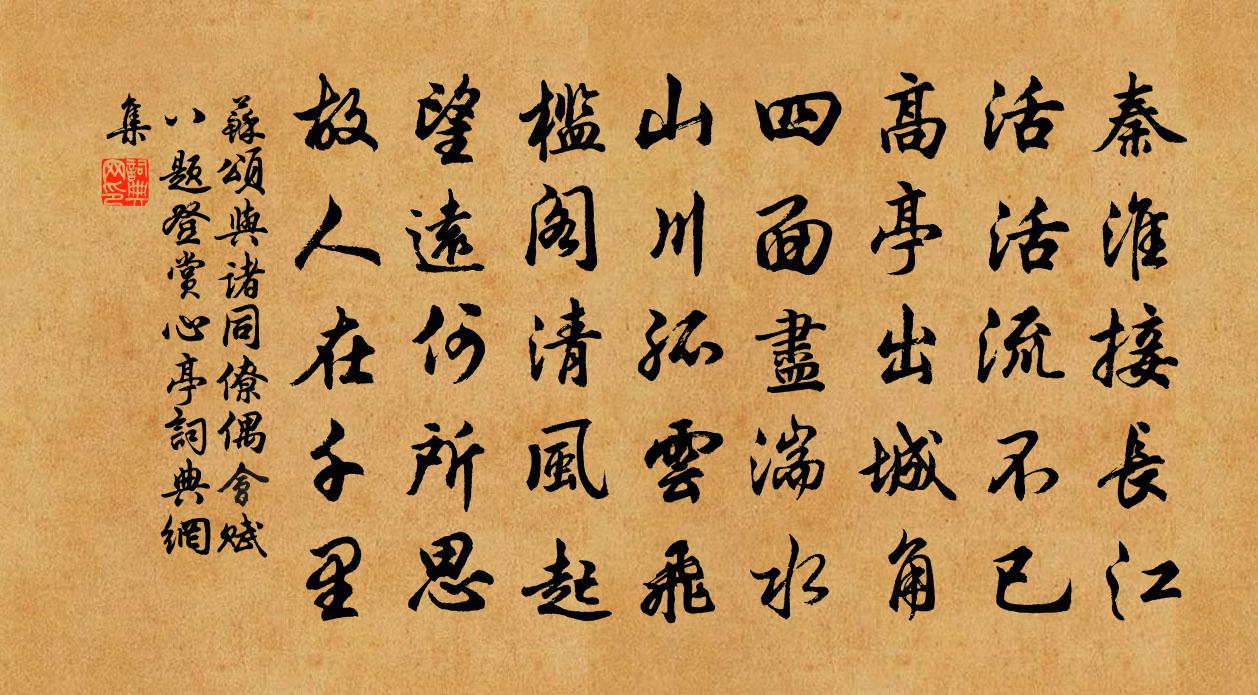 秦淮接長江
活活流不已
高亭出城角
四面盡湍水
山川孤雲飛
檻閣清風起
望遠何所思
故人在千里
蘇頌與诸同僚偶會賦
八题登赏心亭詞典網
集
詞典网印